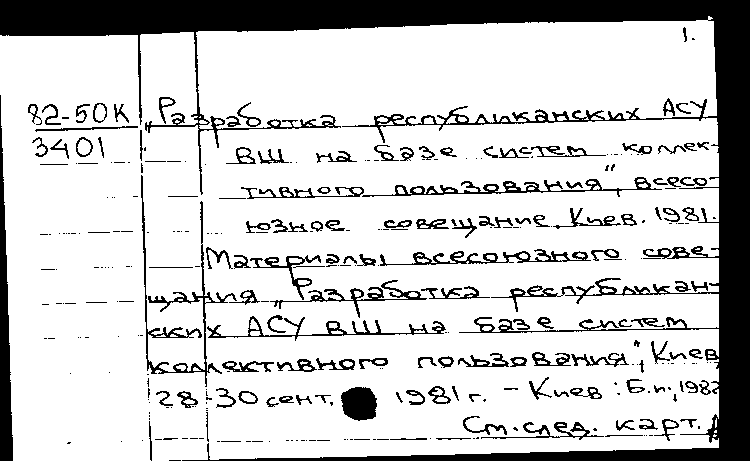 1.
82-50К „Разработка республиканских АСУ
3401 ВШ на базе систем коллек-
тивного пользования", всесо-
юзное совещание. Киев. 1981.
Материалы всесоюзного сове-
щания „Разработка республикан-
ских АСУ ВШ на базе систем
коллективного пользования", Киев,
28-30 сент. 1981 г. - Киев: Б.и., 1982
См. след. карт.